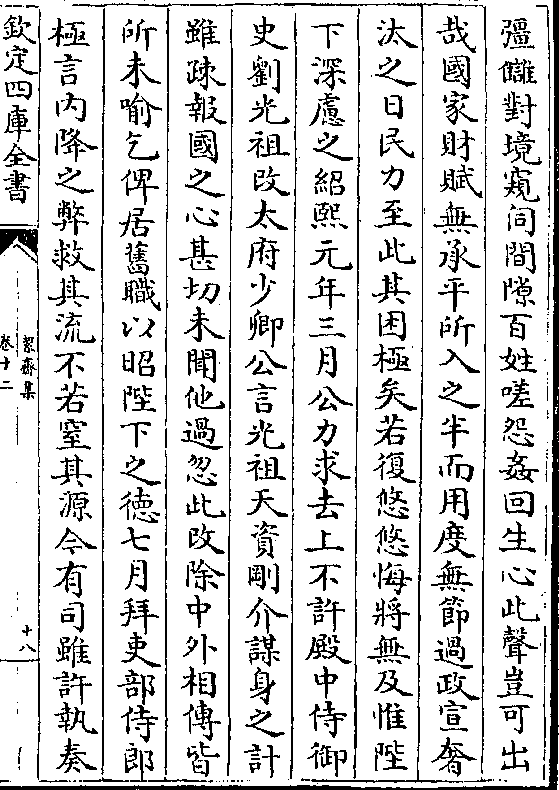 彊讎對境窺伺間隙百姓嗟怨姦回生心此聲豈可出
哉國家財賦無承平所入之半而用度無節過政宣奢
汰之日民力至此其困極矣若復悠悠悔將無及惟陛
下深慮之紹熙元年三月公力求去上不許殿中侍御
史劉光祖改太府少卿公言光祖天資剛介謀身之計
雖疎報國之心甚切未聞他過忽此改除中外相傳皆
所未喻乞俾居舊職以昭陛下之德七月拜吏部侍郎
極言内降之弊救其流不若窒其源今有司雖許執奏
欽定四庫全書
絜齋集
卷十二
十八